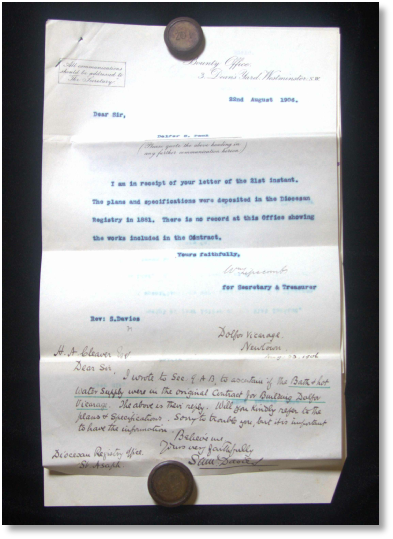 All communications
should be addressed to
The Secretary.
Bounty Office
3, Deans Yard, Westminster, S.W.
22nd August 1904.
Dear Sir,
Dolfor P. Fund
(Please quote the above heading in
any further communication hereon)
I am in receipt of your letter of the 21st instant.
The plans and specifications were deposited in the Diocesan
Registry in 1901. There is no record at this Office showing
the works included in the Contract.
Yours faithfully,
for Secretary & Treasurer
Rev: S. Davies
Dolfor Vicarage,
Newtown
H. A. Cleaver Esq
Dear Sir,
I wrote to Sec. Q A B. to ascertain if the Bath & hot
water Supply were in the original Contract for Building Dolfor
Vicarage. The above is their reply. Will you kindly refer to the
plans & Specifications. Sorry to trouble you, but it is important
to have the information.
Believe me
Yours very faithfully
Diocesan Registry Office
St. Asaph
Saml Davies